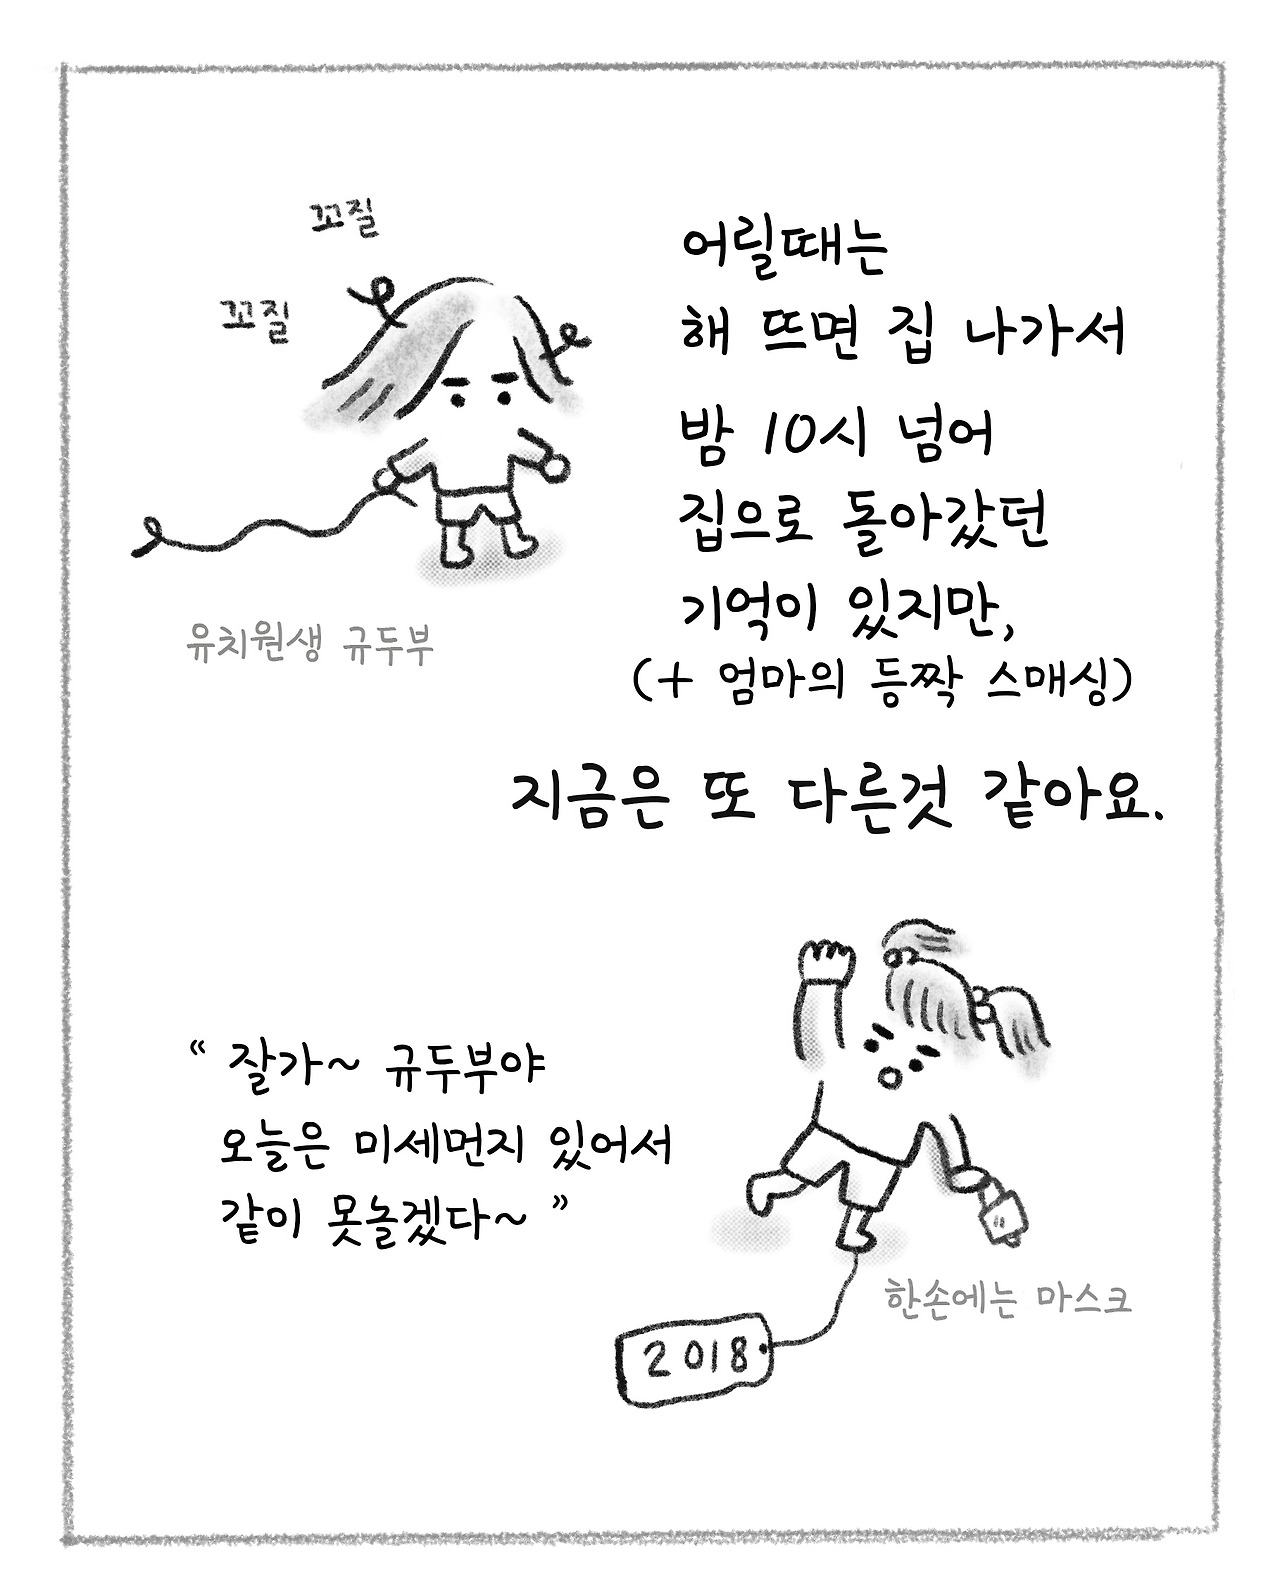 꼬질
꼬질
유치원생 규두부
어릴때는
해 뜨면 집 나가서
밤 10시 넘어
집으로 돌아갔던
기억이 있지만,
(+ 엄마의 등짝 스매싱)
지금은 또 다른것 같아요.
“ 잘가~ 규두부야
오늘은 미세먼지 있어서
같이 못놀겠다~ ”
한손에는 마스크
2018